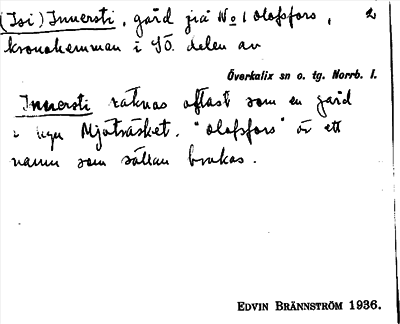 (Isi) Innersti, gård på No 1 Olofsfors, 2
kronohemman i SÖ. delen av
Överkalix sn o. tg. Norrb. l.
Innersti räknas oftast som en gård
i byn Mjoträsket. "Olofsfors" är ett
namn som sällan brukas.
EDVIN BRÄNNSTRÖM 1936.